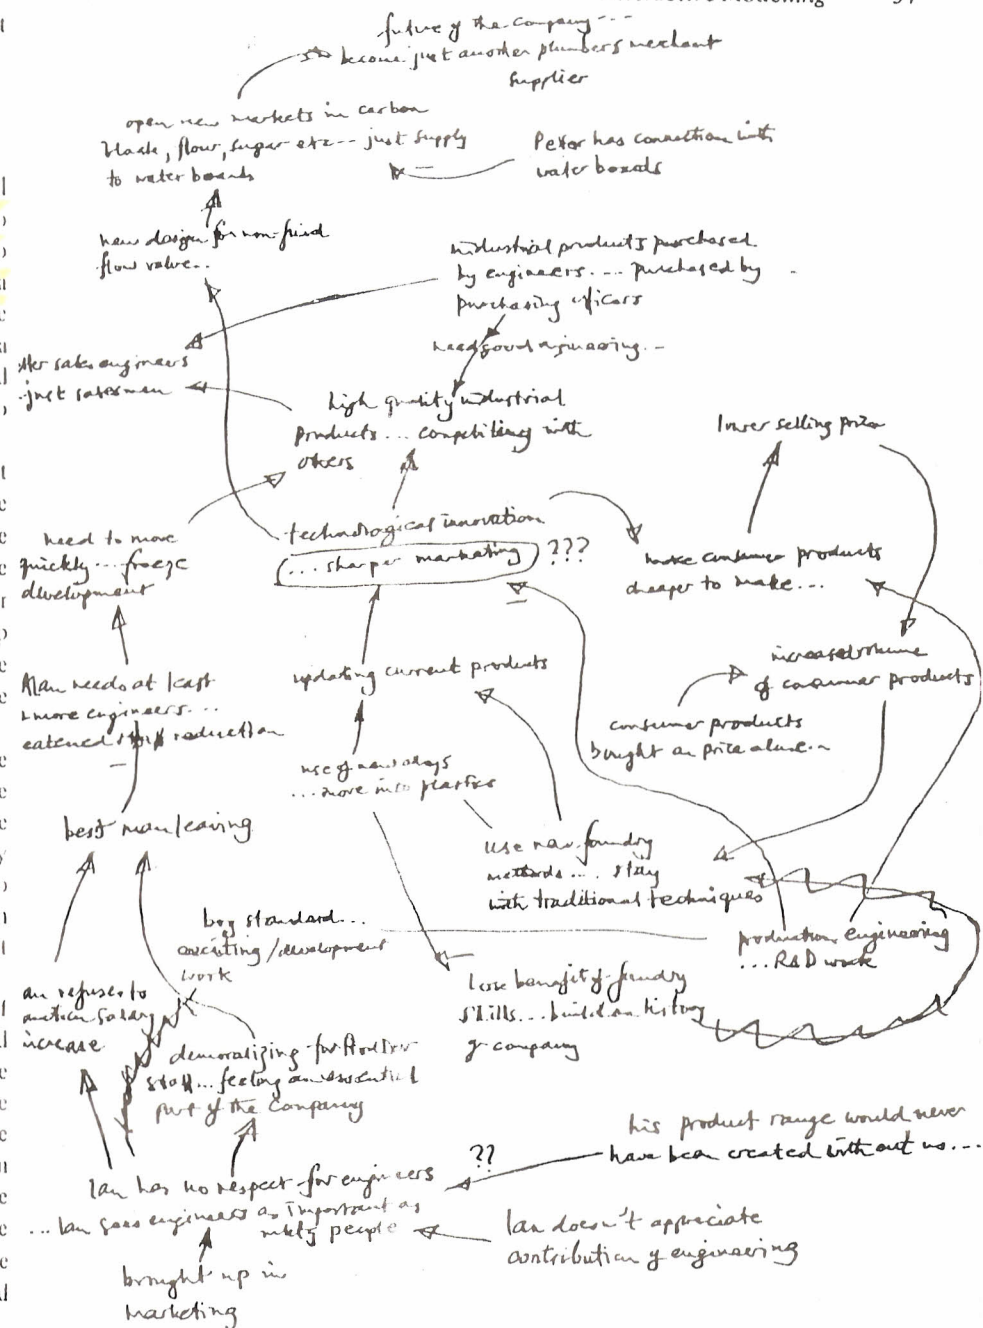 future of the company ---
become just another plumbers merchant
supplier
open new markets in carbon
black, flour, sugar etc --- just supply
to water boards
Peter has connection with
water boards
new design for non-fluid
flow valve..
industrial products purchased
by engineers.... purchased by
purchasing officers
need good engineering..
sales engineers
.. just salesmen
high quality industrial
products ... competitive with
others
lower selling price
technological innovation
... sharper marketing ???
need to move
quickly ... freeze
development
make consumer products
cheaper to make...
increased volume
of consumer products
updating current products
Alan needs at least
more engineers...
reduction
consumer products
bought on price alone..
use of new alloys
... more into plastics
best man leaving
use new foundry
methods .... stay
with traditional techniques
bog standard...
/development
work
production engineering
... R&D work
lose benefit of foundry
skills... build on history
of company
refuses to
salary
increase
demoralizing for
staff... feeling an essential
part of the company
his product range would never
have been created without us....
??
Ian has no respect for engineers
... Ian sees engineers as important as
people
Ian doesn't appreciate
contribution of engineering
brought up in
marketing